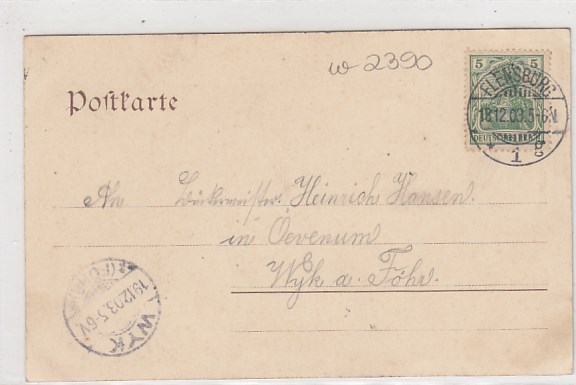 w 2390
5 5
FLENSBURG
18.12.03. 5-6N.
DEUTSCHES REICH
1
Postkarte
An Bäckermeister Heinrich Hansen.
in Oevenum
Wyk a. Föhr.
19.12.03. 5-6V.
WYK